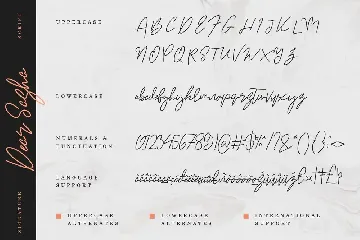 SCRIPT
Dear Sasha
SIGNATURE
UPPERCASE
ABCDEFGHIJKLM
NOPQRSTUVWXYZ
LOWERCASE
abcdefghijklmnopqrstuvwxyz
NUMERALS &
PUNCTUATION
LANGUAGE
SUPPORT
UPPERCASE
ALTERNATES
LOWERCASE
ALTERNATES
INTERNATIONAL
SUPPORT